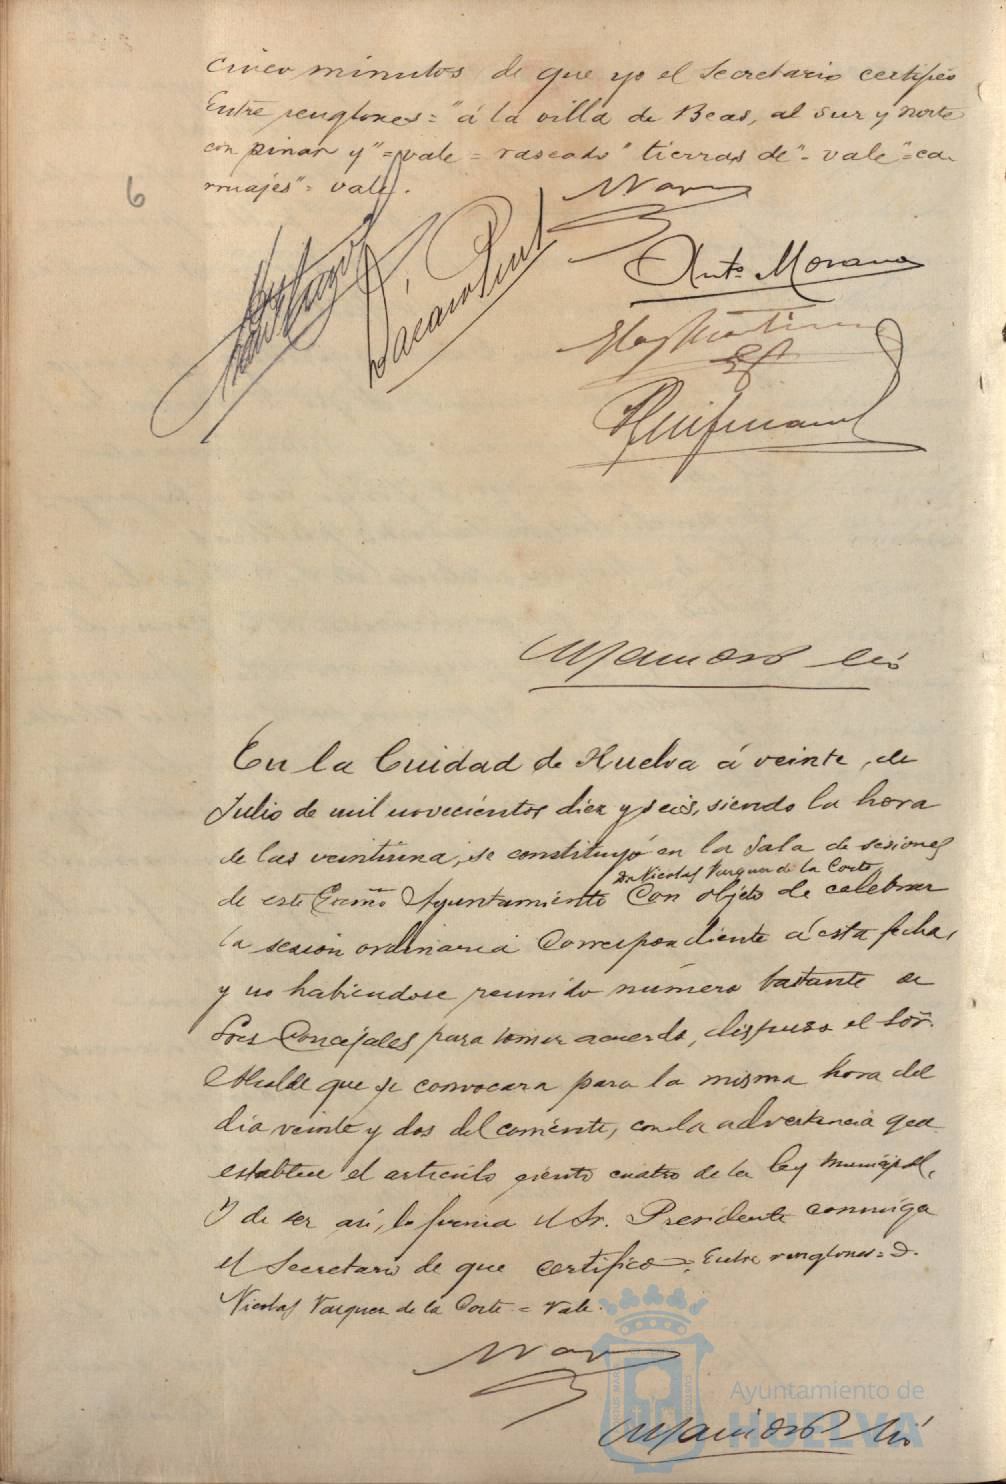 cinco minutos de que yo el Secretario certifico
Entre renglones = "á la villa de Beas, al sur y norte
con pinar y" = vale = raseado "tierras de" - vale "= ca-
rruajes" = vale.
6
Antº Morano
En la Cuidad de Huelva á veinte, de
Julio de mil novecientos diez y seis, siendo la hora
de las veintiuna, se constituyó en la Sala de sesiones
Dn Nicolas Vazquez de la Corte
de este Excmo Ayuntamiento Con objeto de celebrar
la sesion ordinaria Correspondiente á esta fecha,
y no habiendose reunido número bastante de
Sres Concejales para tomar acuerdo, dispuso el Sor.
Alcalde que se convocara para la misma hora del
dia veinte y dos del corriente, con la advertencia que
establece el articulo ciento cuatro de la ley municipal,
Y de ser asi, lo firma el Sr. Presidente conmigo
el Secretario de que certifico = Entre renglones = D.
Nicolas Vazquez de la Corte = Vale.
Ayuntamiento de
HUELVA